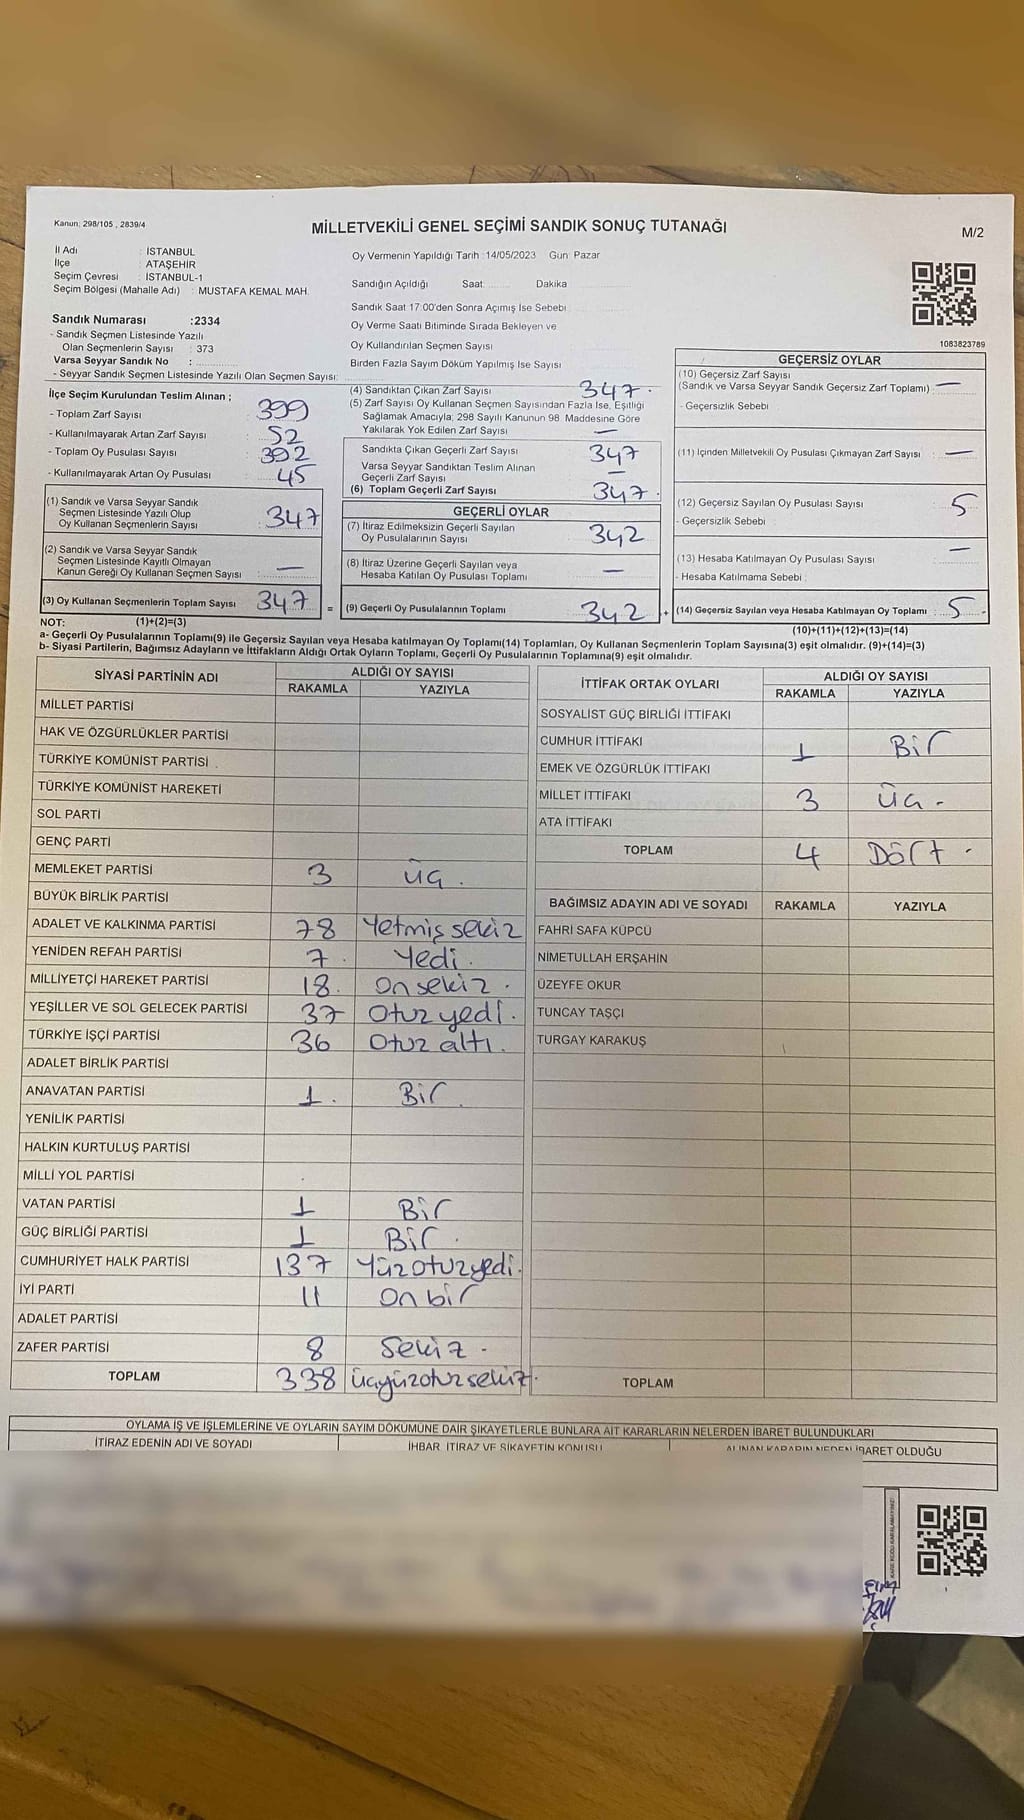 Kanun: 298/105 , 2839/4
MİLLETVEKİLİ GENEL SEÇİMİ SANDIK SONUÇ TUTANAĞI
M/2
İl Adı : İSTANBUL
İlçe : ATAŞEHİR
Seçim Çevresi : İSTANBUL-1
Seçim Bölgesi (Mahalle Adı) : MUSTAFA KEMAL MAH.
Oy Vermenin Yapıldığı Tarih :14/05/2023 Gün: Pazar
Sandığın Açıldığı Saat: Dakika
Sandık Saat 17:00'den Sonra Açımış İse Sebebi :
Oy Verme Saati Bitiminde Sırada Bekleyen ve
Oy Kullandırılan Seçmen Sayısı
Birden Fazla Sayım Döküm Yapılmış İse Sayısı
1083823789
Sandık Numarası :2334
- Sandık Seçmen Listesinde Yazılı
Olan Seçmenlerin Sayısı : 373
Varsa Seyyar Sandık No :
- Seyyar Sandık Seçmen Listesinde Yazılı Olan Seçmen Sayısı:
İlçe Seçim Kurulundan Teslim Alınan ;
- Toplam Zarf Sayısı : 399
- Kullanılmayarak Artan Zarf Sayısı : 52
- Toplam Oy Pusulası Sayısı : 392
- Kullanılmayarak Artan Oy Pusulası : 45
(1) Sandık ve Varsa Seyyar Sandık
Seçmen Listesinde Yazılı Olup
Oy Kullanan Seçmenlerin Sayısı : 347
(2) Sandık ve Varsa Seyyar Sandık
Seçmen Listesinde Kayıtlı Olmayan
Kanun Gereği Oy Kullanan Seçmen Sayısı : —
(3) Oy Kullanan Seçmenlerin Toplam Sayısı 347 =
(4) Sandıktan Çıkan Zarf Sayısı 347.
(5) Zarf Sayısı Oy Kullanan Seçmen Sayısından Fazla İse, Eşitliği
Sağlamak Amacıyla; 298 Sayılı Kanunun 98. Maddesine Göre
Yakılarak Yok Edilen Zarf Sayısı —
Sandıkta Çıkan Geçerli Zarf Sayısı 347
Varsa Seyyar Sandıktan Teslim Alınan
Geçerli Zarf Sayısı —
(6) Toplam Geçerli Zarf Sayısı 347.
GEÇERLİ OYLAR
(7) İtiraz Edilmeksizin Geçerli Sayılan
Oy Pusulalarının Sayısı 342
(8) İtiraz Üzerine Geçerli Sayılan veya
Hesaba Katılan Oy Pusulası Toplamı —
(9) Geçerli Oy Pusulalarının Toplamı 342 +
GEÇERSİZ OYLAR
(10) Geçersiz Zarf Sayısı
(Sandık ve Varsa Seyyar Sandık Geçersiz Zarf Toplamı) : —
- Geçersizlik Sebebi
(11) İçinden Milletvekili Oy Pusulası Çıkmayan Zarf Sayısı : —
(12) Geçersiz Sayılan Oy Pusulası Sayısı 5
- Geçersizlik Sebebi
(13) Hesaba Katılmayan Oy Pusulası Sayısı —
- Hesaba Katılmama Sebebi
(14) Geçersiz Sayılan veya Hesaba Katılmayan Oy Toplamı : 5
NOT: (1)+(2)=(3)
(10)+(11)+(12)+(13)=(14)
a- Geçerli Oy Pusulalarının Toplamı(9) ile Geçersiz Sayılan veya Hesaba katılmayan Oy Toplamı(14) Toplamları, Oy Kullanan Seçmenlerin Toplam Sayısına(3) eşit olmalıdır. (9)+(14)=(3)
b- Siyasi Partilerin, Bağımsız Adayların ve İttifakların Aldığı Ortak Oyların Toplamı, Geçerli Oy Pusulalarının Toplamına(9) eşit olmalıdır.
SİYASİ PARTİNİN ADI ALDIĞI OY SAYISI
RAKAMLA YAZIYLA
MİLLET PARTİSİ
HAK VE ÖZGÜRLÜKLER PARTİSİ
TÜRKİYE KOMÜNİST PARTİSİ
TÜRKİYE KOMÜNİST HAREKETİ
SOL PARTİ
GENÇ PARTİ
MEMLEKET PARTİSİ 3 üç.
BÜYÜK BİRLİK PARTİSİ
ADALET VE KALKINMA PARTİSİ 78 Yetmiş sekiz
YENİDEN REFAH PARTİSİ 7. Yedi.
MİLLİYETÇİ HAREKET PARTİSİ 18. On sekiz.
YEŞİLLER VE SOL GELECEK PARTİSİ 37 Otuz yedi.
TÜRKİYE İŞÇİ PARTİSİ 36 Otuz altı.
ADALET BİRLİK PARTİSİ
ANAVATAN PARTİSİ 1. Bir.
YENİLİK PARTİSİ
HALKIN KURTULUŞ PARTİSİ
MİLLİ YOL PARTİSİ
VATAN PARTİSİ 1 Bir
GÜÇ BİRLİĞİ PARTİSİ 1 Bir.
CUMHURİYET HALK PARTİSİ 137 Yüzotuzyedi.
İYİ PARTİ 11 On bir
ADALET PARTİSİ
ZAFER PARTİSİ 8 Sekiz.
TOPLAM 338 üçyüzotuzsekiz.
İTTİFAK ORTAK OYLARI ALDIĞI OY SAYISI
RAKAMLA YAZIYLA
SOSYALİST GÜÇ BİRLİĞİ İTTİFAKI
CUMHUR İTTİFAKI 1 Bir
EMEK VE ÖZGÜRLÜK İTTİFAKI
MİLLET İTTİFAKI 3 üç.
ATA İTTİFAKI
TOPLAM 4 Dört.
BAĞIMSIZ ADAYIN ADI VE SOYADI RAKAMLA YAZIYLA
FAHRİ SAFA KÜPCÜ
NİMETULLAH ERŞAHİN
ÜZEYFE OKUR
TUNCAY TAŞÇI
TURGAY KARAKUŞ
TOPLAM
OYLAMA İŞ VE İŞLEMLERİNE VE OYLARIN SAYIM DÖKÜMÜNE DAİR ŞİKAYETLERLE BUNLARA AİT KARARLARIN NELERDEN İBARET BULUNDUKLARI
İTİRAZ EDENİN ADI VE SOYADI İHBAR, İTİRAZ VE ŞİKAYETİN KONUSU ALINAN KARARIN NEDEN İBARET OLDUĞU